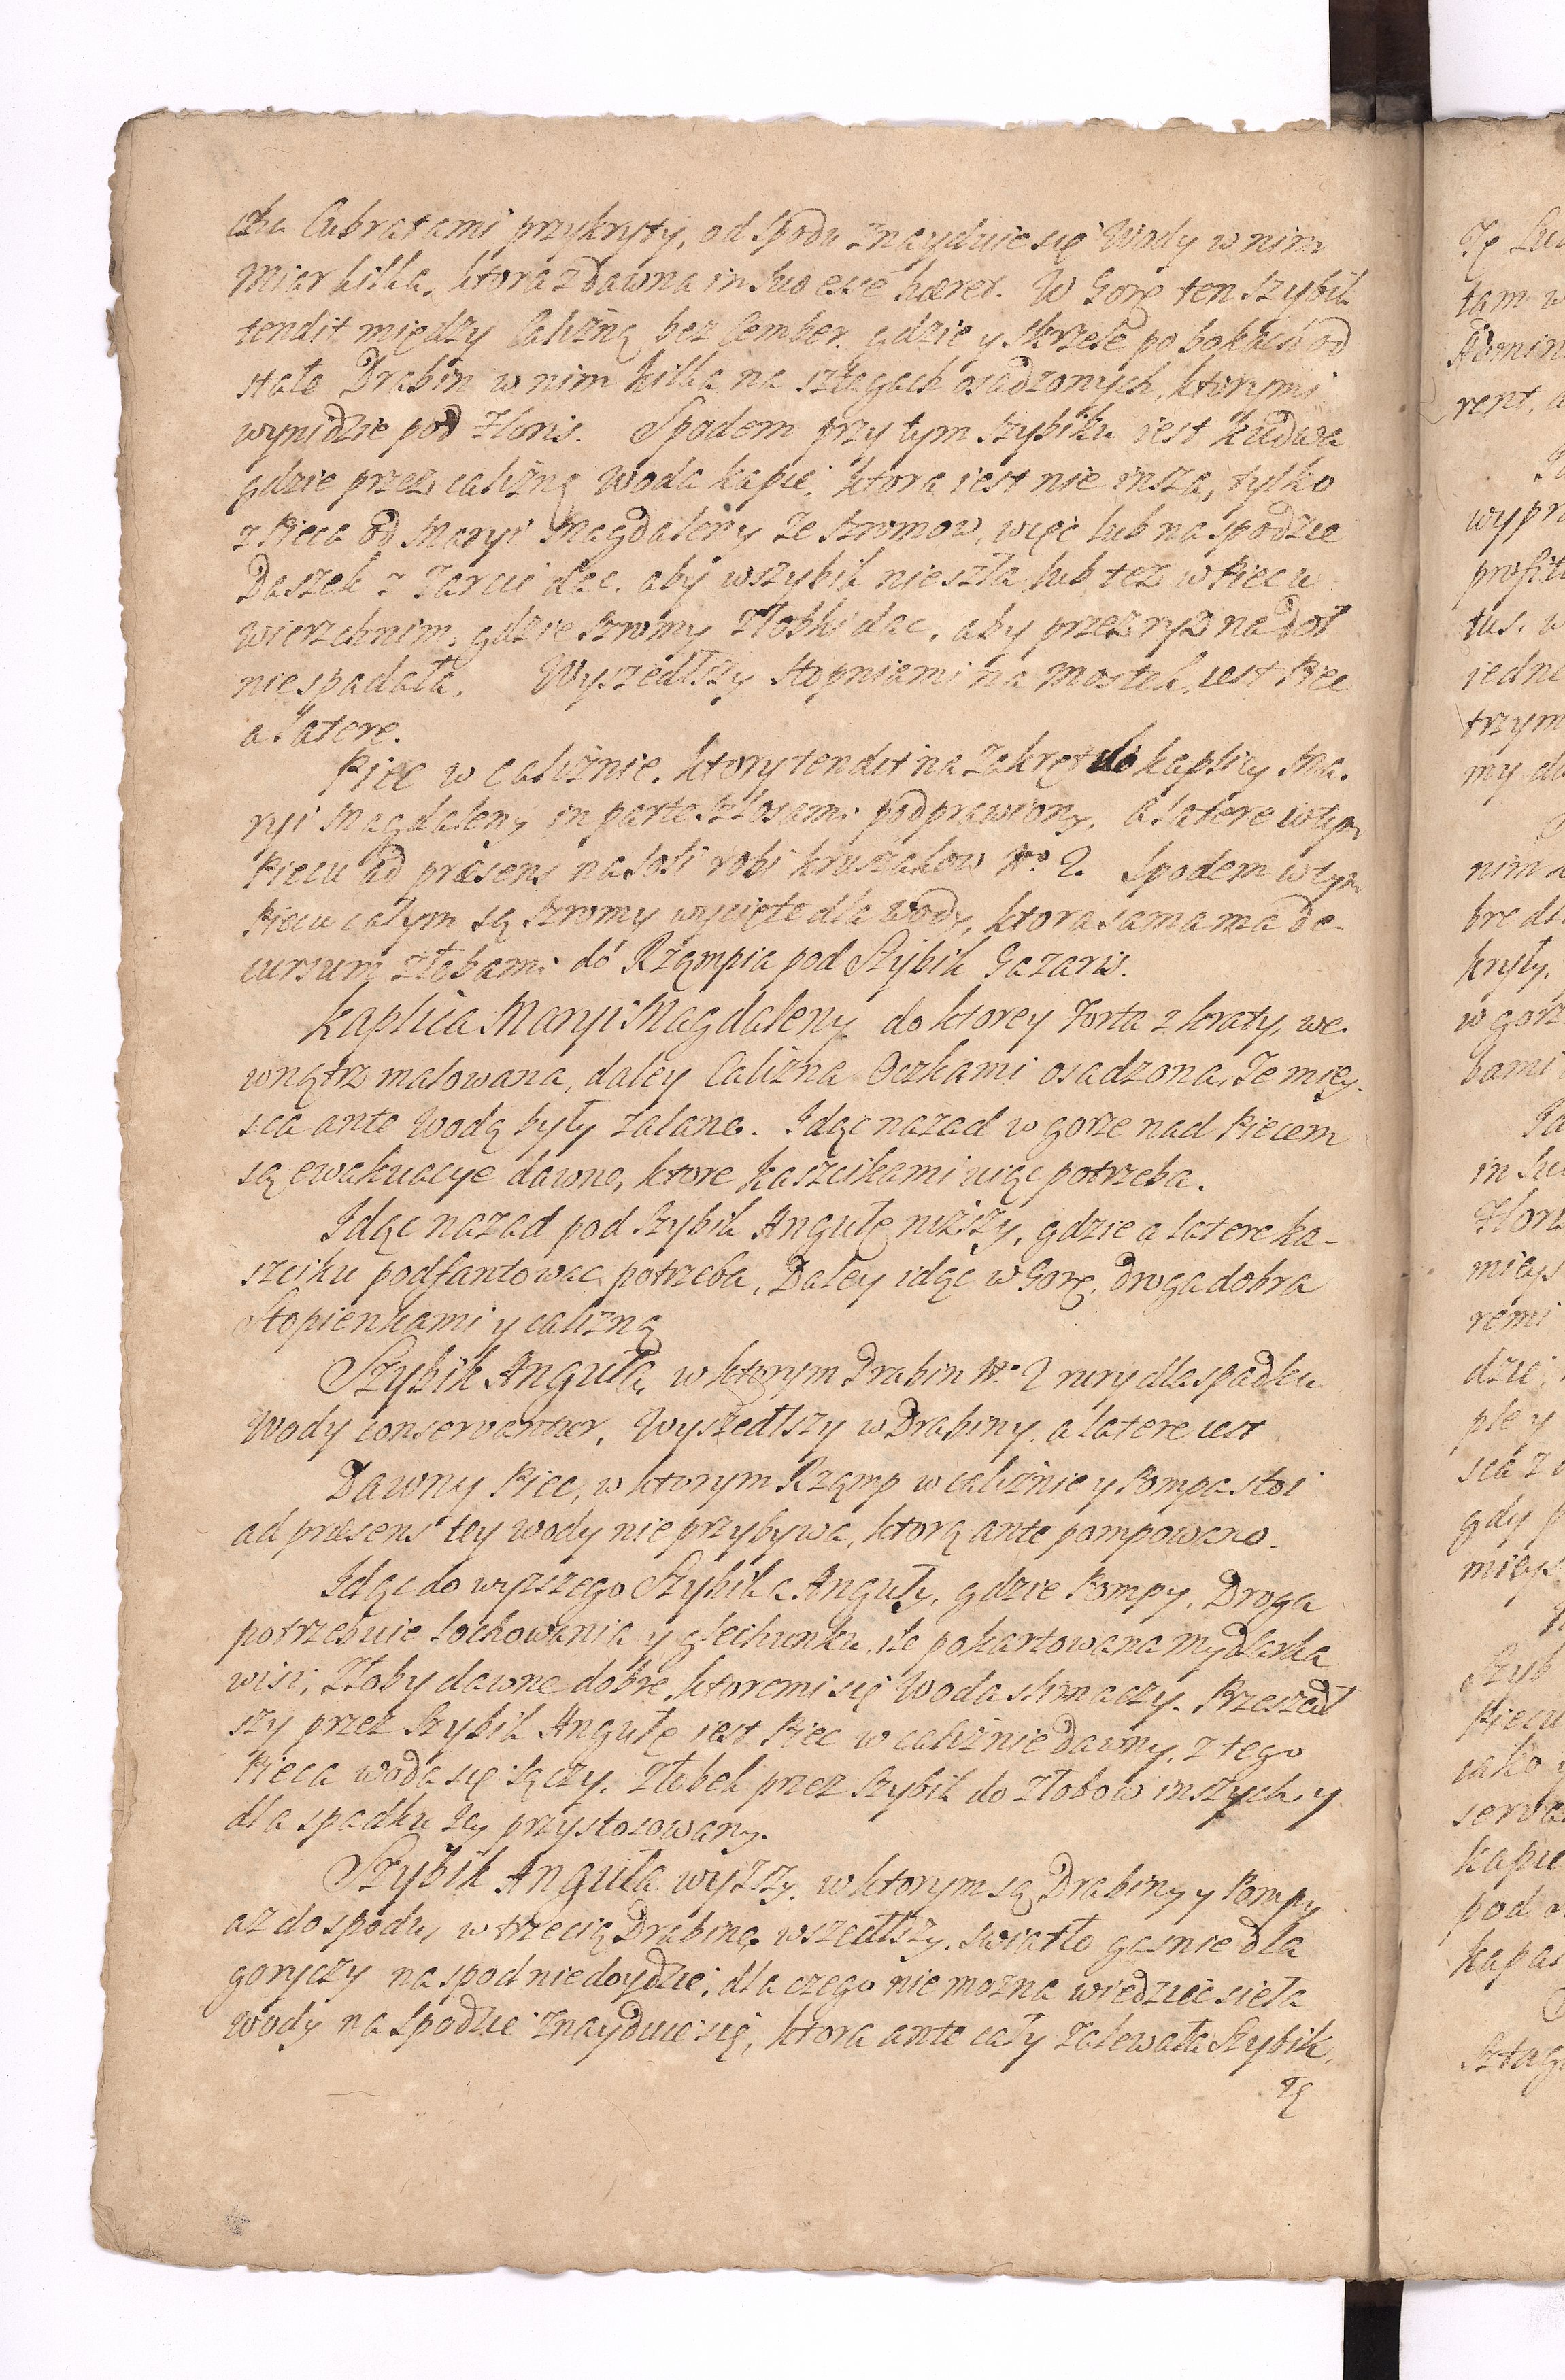 cku Cubratami przykryty, od Spodu znayduie się Wody w nim
Miar kilka, ktora zdawna in suo esse hæret. W Gorę ten Szybik
tendit między Calizną bez Cember, gdzie y Skrzele po bokach od
stałe Drabin w nim kilka na sztagach osadzonych, ktorymi
wynidzie pod Floris. Spodem przy tym szybiku iest
gdzie przez caliznę Woda kapie, ktora iest nie insza, tylko
z Pieca od Maryi Magdaleny ze sromow, więc lub na spodzie
Daszek z Tarcic dac, aby w szybik nie szła lub też w Piecu
wierzchnim, gdzie sromy Złobki dac, aby przez ryz na doł
nie spadała. Wyszedłszy stopniami na Mostek, iest Piec
a latere.
Piec w caliznie, ktory tendit na Zakręt do kaplicy Ma-
ryi Magdaleny in parte Filosami podprawiony. A latere w tym
Piecu ad præsens na Soli robi kruszakow No 2. Spodem w tym
Piecu całym są sromy wycięte dla wody, ktora sama ma de-
cursum złobami do Rząmpia pod Szybik Gazaris.
Kaplica Maryi Magdaleny do ktorey Forta z kraty, we-
wnątrz malowana, daley Calizna Oczkami osadzona, Te miey-
sca ante Wodą były zalane. Idąc nazad w gorze nad Piecem
są ewakuacye dawne, ktore kaszcikami uiąc potrzeba.
Idąc nazad pod Szybik Angułę niższy, gdzie a latere ka-
szciku podfantowac potrzeba, Daley idąc w Gorę, droga dobra
Stopienkami y calizną
Szybik Anguła, w ktorym Drabin No 2 rury dla spadku
Wody conservantur. Wyszedłszy w Drabiny, a latere iest
Dawny Piec, w ktorym Rząmp w caliznie y Pompa stoi
ad præsens tey wody nie przybywa, ktorą ante pompowano.
Idąc do wyzszego Szybika Anguły, gdzie Pompy, Droga
potrzebuie sochowania y glechunku, ile pokartowana Mydlarka
wisi; Złoby dawne dobre, ktoremi się Woda stimaczy. Przeszedł
szy przez Szybik Angułę iest Piec w caliznie dawny, z tego
Pieca woda się sączy. Złobek przez Szybik do złobow inszych y
dla spadku Jey przystosowany.
Szybik Anguła wyższy, w ktorym są Drabiny y Pompy
az do spodu, w trzecią Drabinę wszedłszy, swiatło gasnie dla
goryczy na spod nie doydzie, dla czego nie mozna wiedziec sieła
wody na Spodzie znayduie się, ktora ante cały zalewała Szybik,
Tę